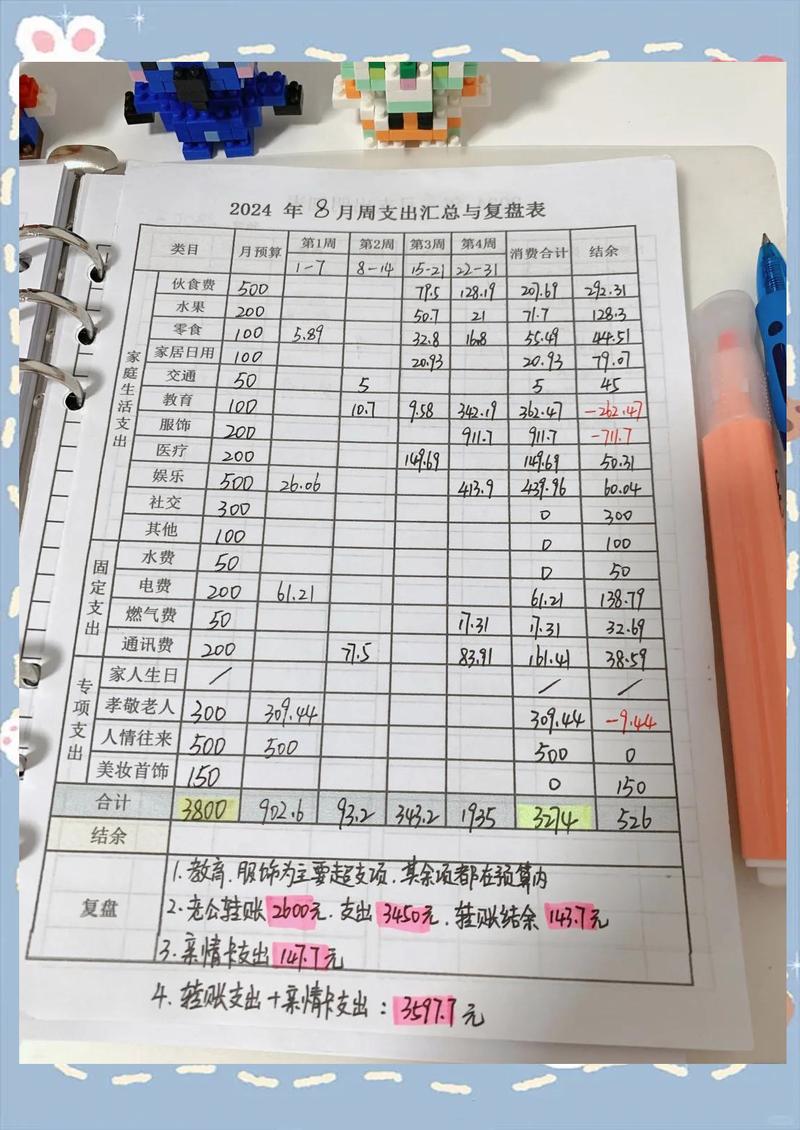 2024 年 8 月周支出汇总与复盘表
类目 月预算 第1周 第2周 第3周 第4周 消费合计 结余
1-7 8-14 15-21 22-31
家庭生活支出
伙食费 500 79.5 128.19 207.69 292.31
水果 200 50.7 21 71.7 128.3
零食 100 5.89 32.8 16.8 55.49 44.51
家居日用 100 20.93 20.93 79.07
交通 50 5 5 45
教育 100 10.7 9.58 342.19 362.47 -262.47
服饰 200 911.7 911.7 -711.7
医疗 200 149.69 149.69 50.31
娱乐 500 26.06 413.9 439.96 60.04
社交 300 0 300
其他 100 0 100
固定支出
水费 50 0 50
电费 200 61.21 61.21 138.79
燃气费 50 17.31 17.31 32.69
通讯费 200 77.5 83.91 161.41 38.59
专项支出
家人生日 / / /
孝敬老人 300 309.44 309.44 -9.44
人情往来 500 500 500 0
美妆首饰 150 0 150
合计 3800 902.6 93.2 343.2 1935 3274 526
结余
复盘
1.教育、服饰为主要超支项、其余项都在预算内
2.老公转账2600元.支出3450元.转账结余143.7元
3.亲情卡支出147.7元
4.转账支出+亲情卡支出：3597.7元